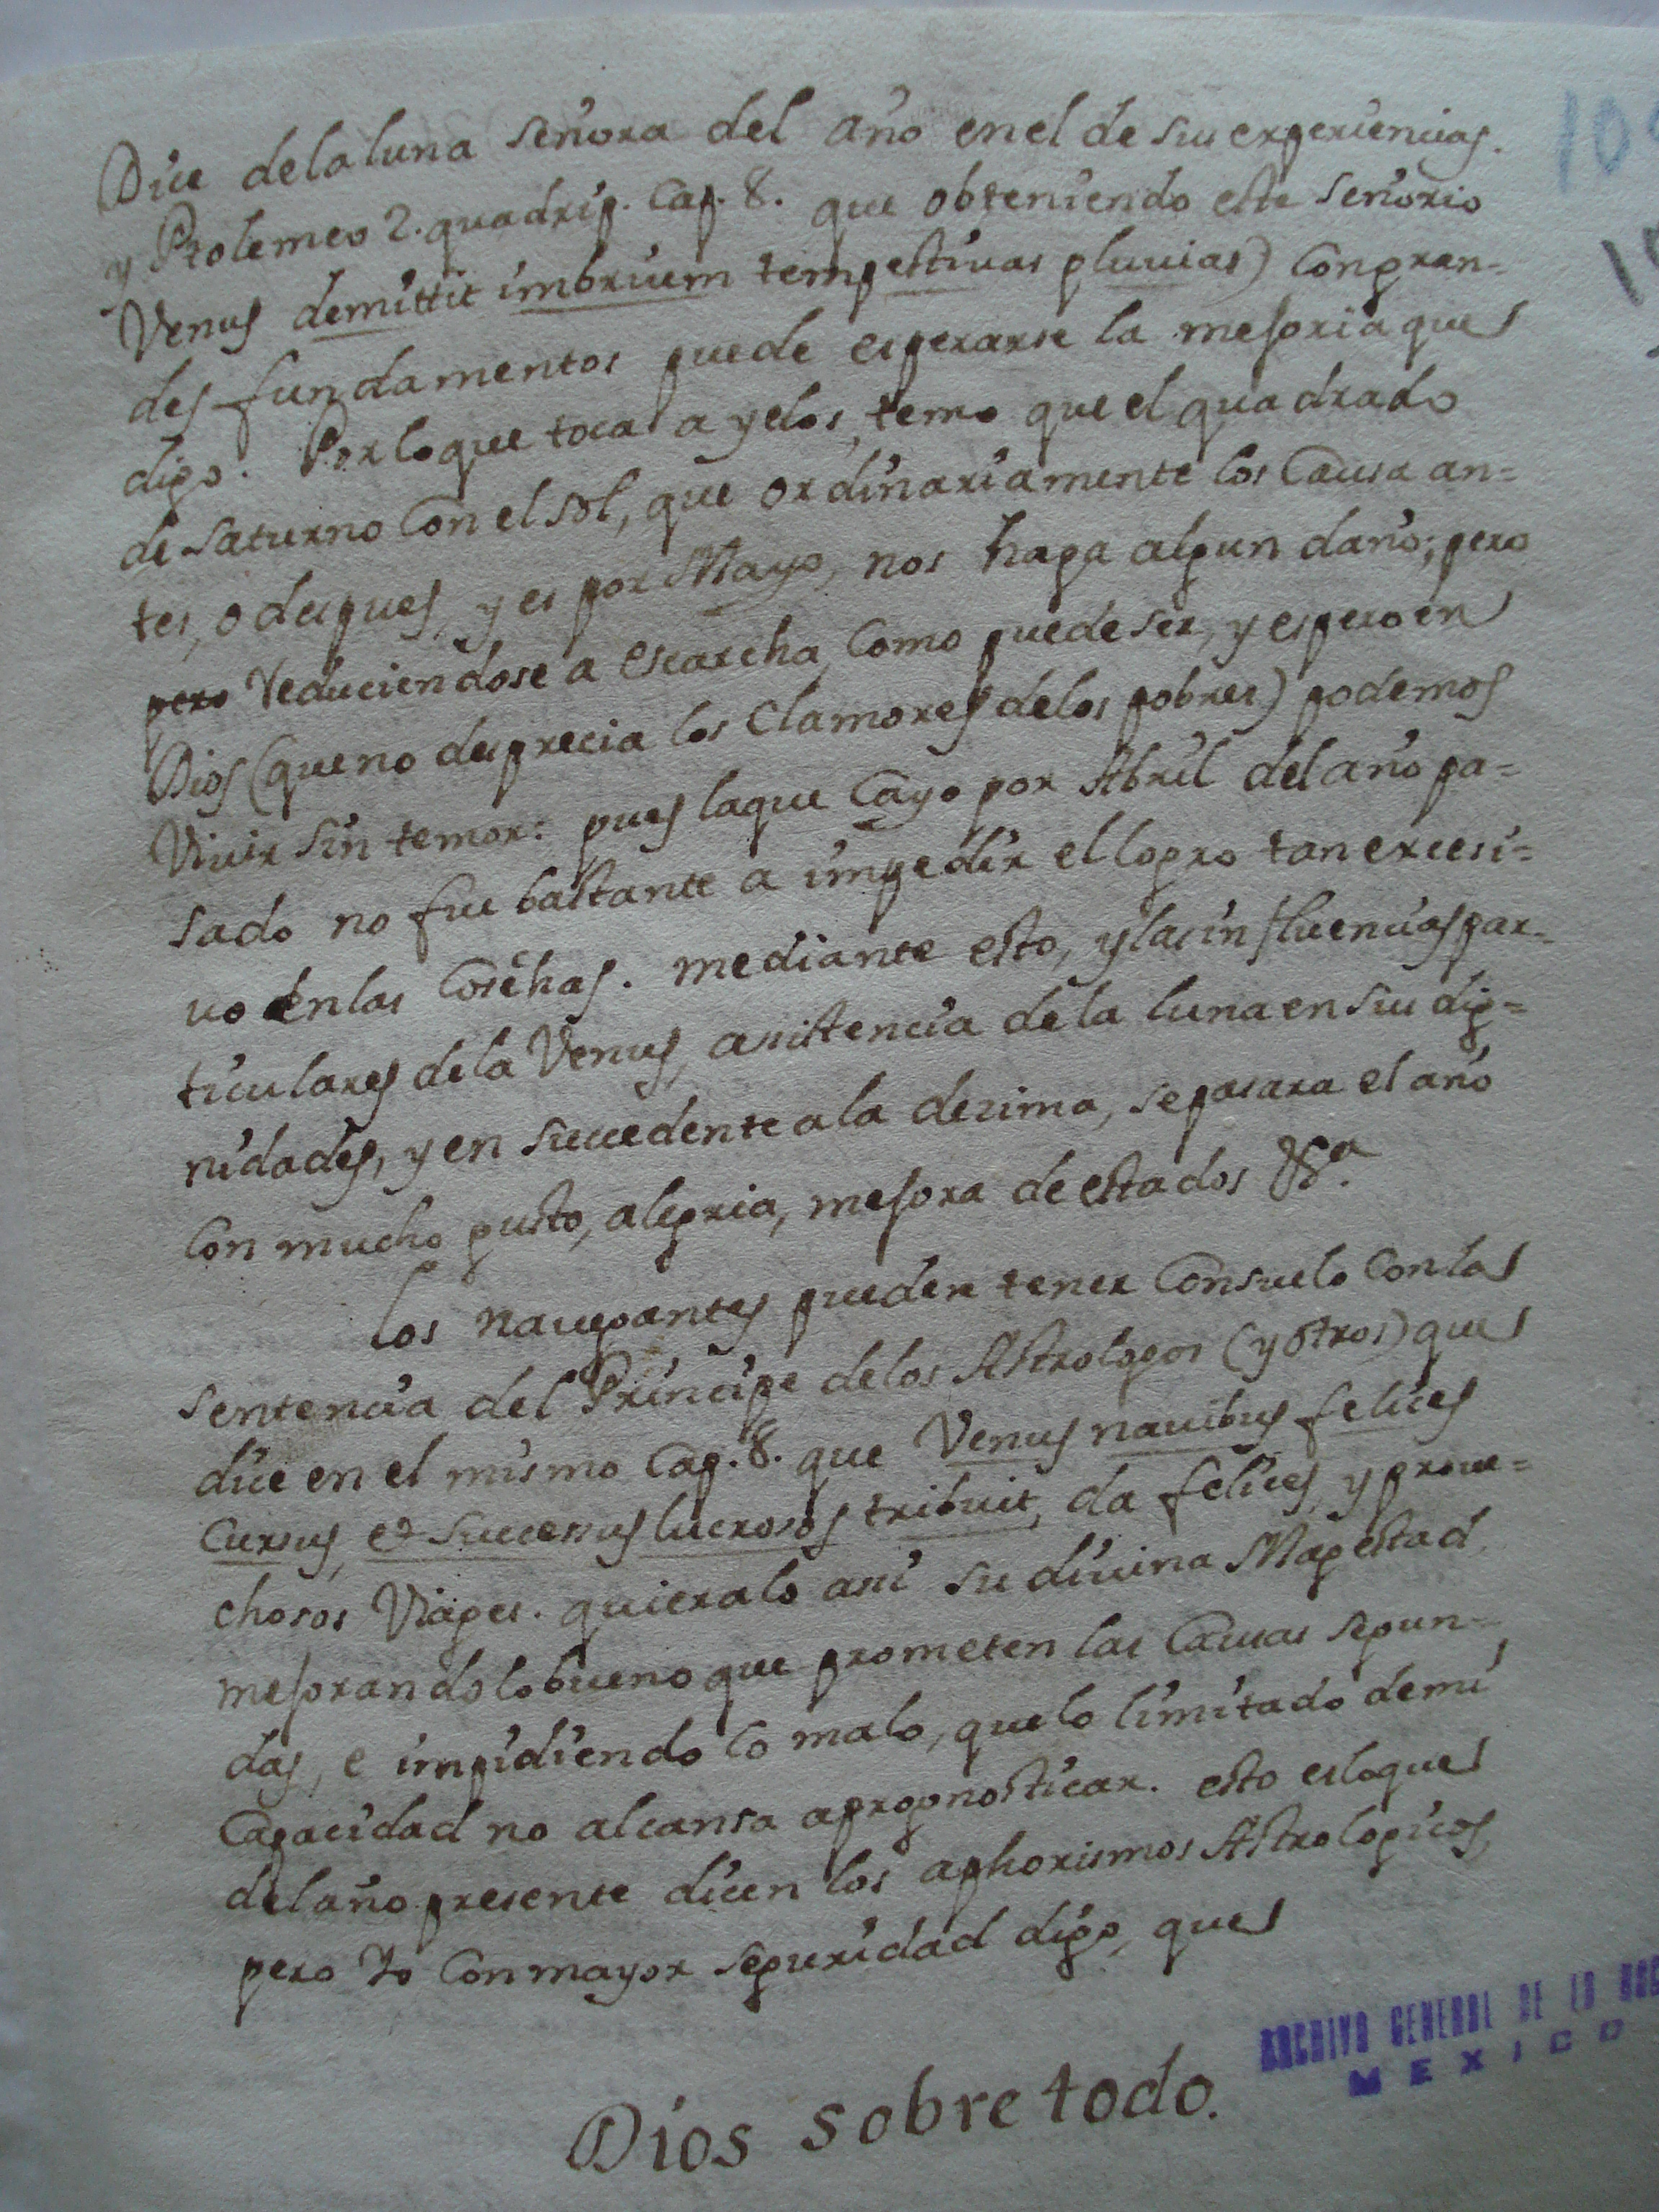 Dice de la luna señora del año en el de sus experiencias.
y Ptolemeo 2. quadrip. Cap. 8. que obteniendo este señorio
Venus demittit imbrium tempestivas pluvias) Con gran=
des fundamentos puede esperarse la mejoria que
digo. Por lo que toca a yelos, temo que el quadrado
de Saturno Con el sol, que ordinariamente los Causa an=
tes, o despues, y es por Mayo, nos haga algun daño; pero
pero reduciendose a escarcha, Como puede ser, y espero en
Dios (que no desprecia los Clamores de los pobres) podemos
Vivir sin temor: pues la que Cayo por Abril del año pa=
sado no fue bastante a impedir el logro tan excesi=
uo en las Cosechas. mediante esto, y las influencias par-
ticulares de la Venus, asistencia de la luna en su dig=
nidades, y en succedente a la dezima, se pasara el año
Con mucho gusto, alegria, mejora de estados &a.
Los navegantes pueden tener Consuelo Con la
sentencia del Principe de los Astrologos (y otros) que
dice en el mismo Cap. 8. que Venus navibus felices
Cursus, et successus lucrosos tribuit, da felices, y prove=
chosos Viages. quieralo asi su divina Magestad,
mejorando lo bueno que prometen las Causas segun=
das, e impidiendo lo malo, que lo limitado de mi
Capacidad no alcansa a prognosticar. esto es lo que
del año presente dicen los aphorismos Astrologicos,
pero Yo Con mayor seguridad digo, que
Dios sobre todo.
ARCHIVO GENERAL DE LA
MEXICO